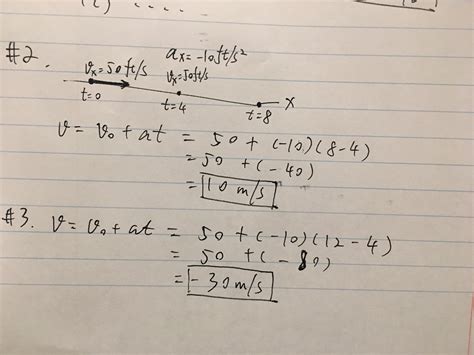 #2.
vx=50ft/s
ax=-10ft/s²
vx=50ft/s
t=0 t=4 t=8 x
v = v₀ + at = 50 + (-10)(8-4)
= 50 + (-40)
= 10 m/s
#3. v = v₀ + at = 50 + (-10)(12-4)
= 50 + (-80)
= -30 m/s